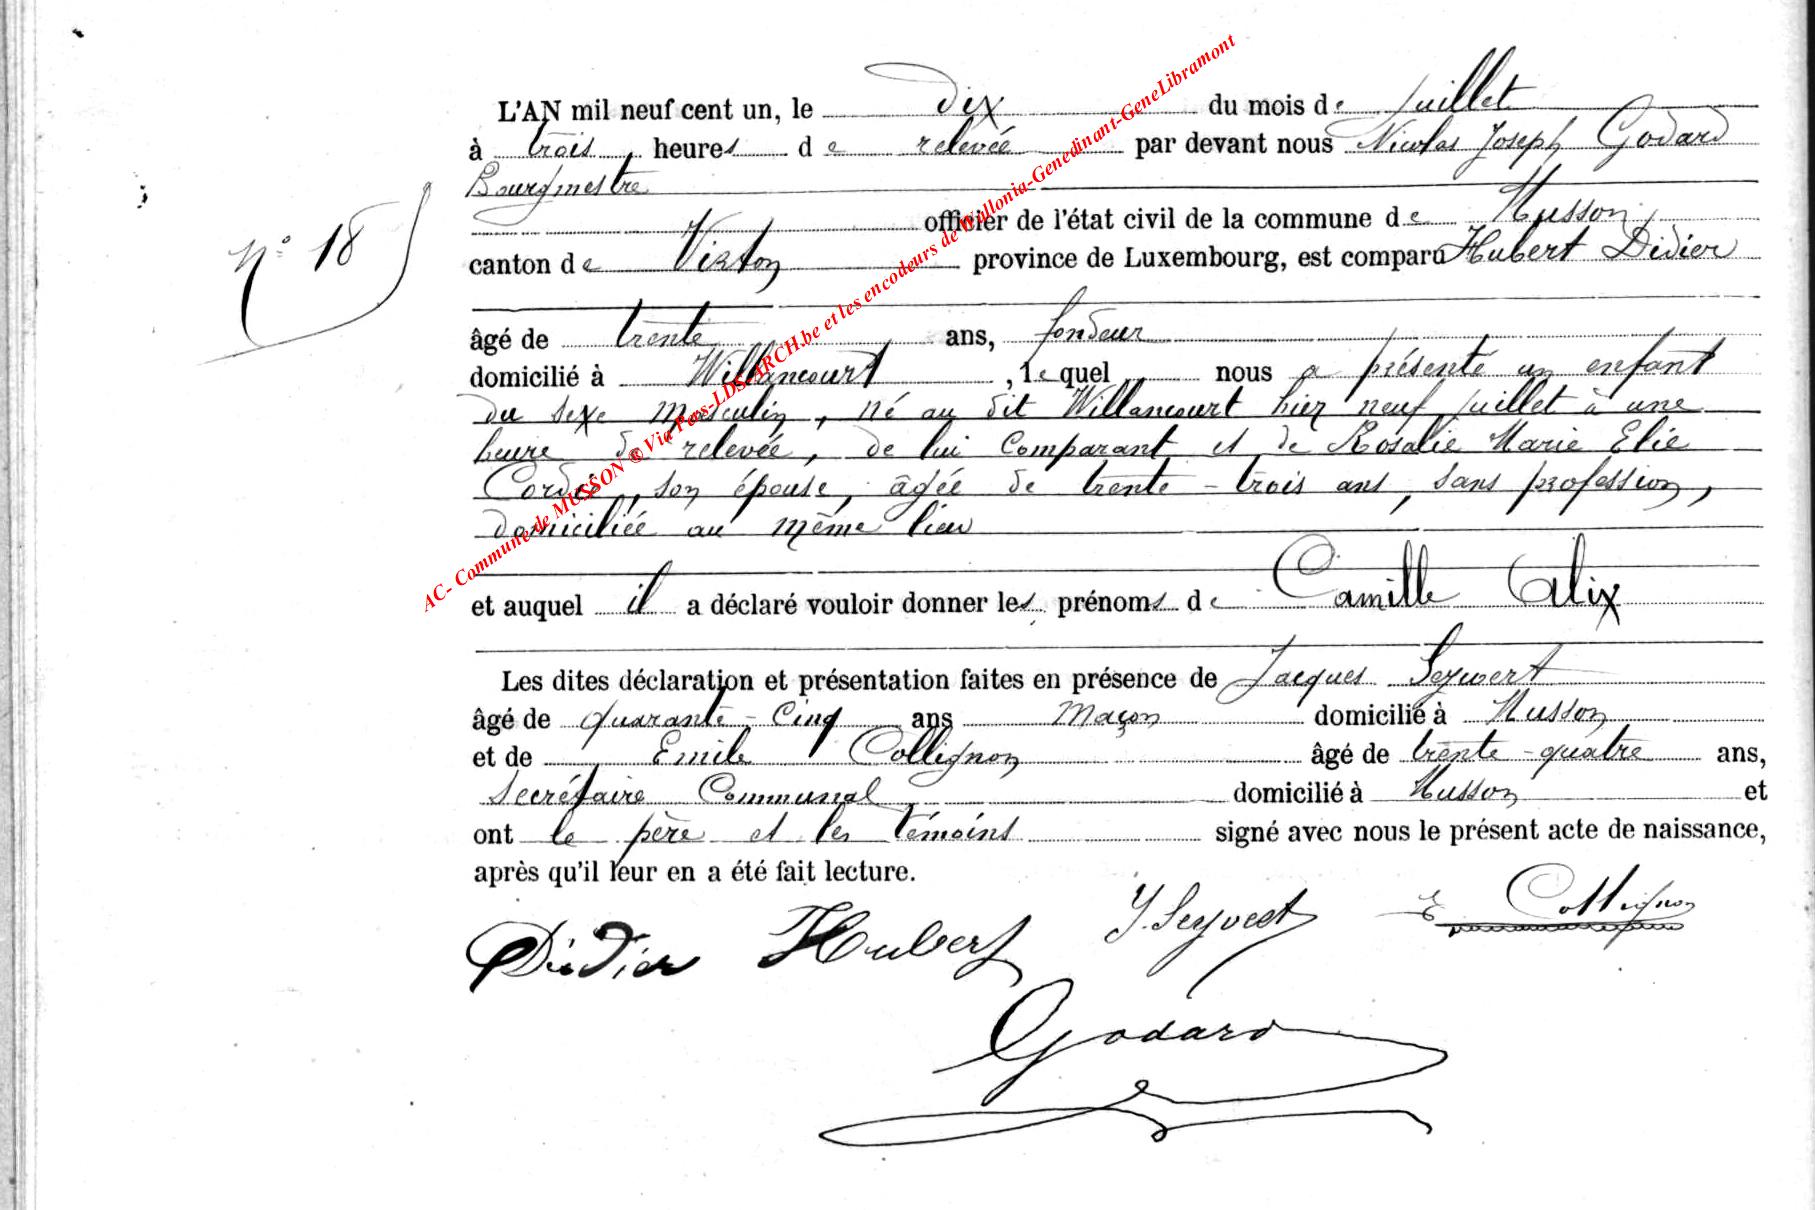 L'AN mil neuf cent un, le dix du mois de juillet
à trois heures de relevée par devant nous Nicolas Joseph Godard
Bourgmestre
officier de l'état civil de la commune de Musson
N° 18
canton de Virton province de Luxembourg, est comparu Hubert Didier
âgé de trente ans, fondeur
domicilié à Willancourt, lequel nous a présenté un enfant
du sexe masculin, né au dit Willancourt hier neuf juillet à une
heure de relevée, de lui comparant et de Rosalie Marie Elie
son épouse, âgée de trente-trois ans, sans profession,
domiciliée au même lieu
et auquel il a déclaré vouloir donner les prénoms de Camille Alix
Les dites déclaration et présentation faites en présence de Jacques Seyvert
âgé de quarante-cinq ans maçon domicilié à Musson
et de Emile Collignon âgé de trente-quatre ans,
secrétaire communal domicilié à Musson et
ont le père et les témoins signé avec nous le présent acte de naissance,
après qu'il leur en a été fait lecture.
Didier Hubert J. Seyvert E Collignon
Godard
AC- Commune de MUSSON ® Via Pars-LDS-ARCH.be et les encodeurs de Wallonia-Genedinant-GeneLibramont